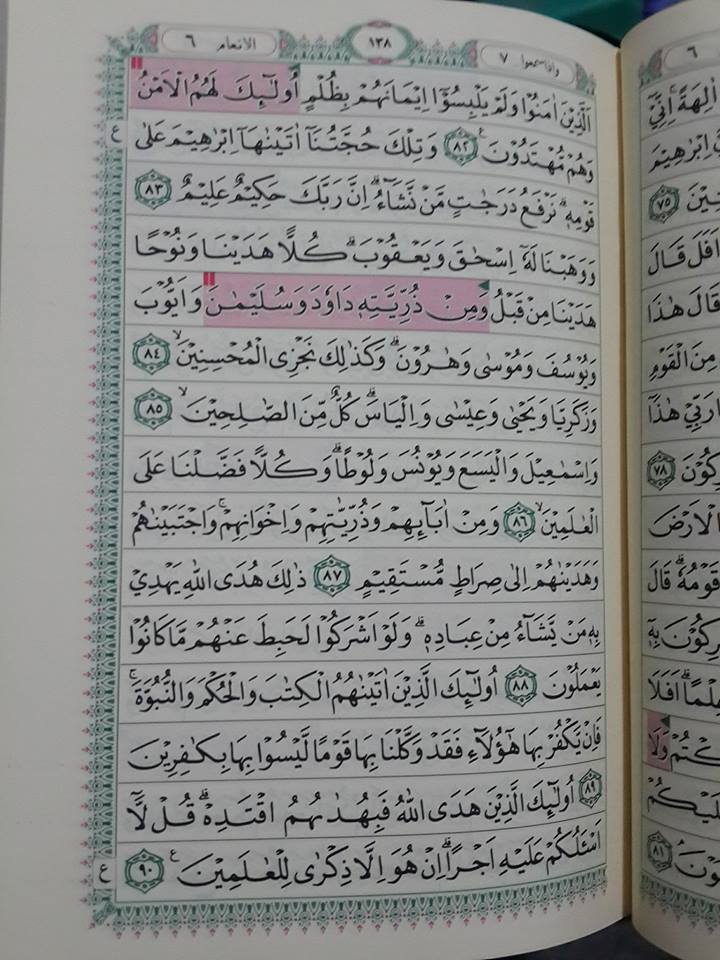 الانعام ٦
١٣٨
واذا سمعوا ٧
اَلَّذِيْنَ اٰمَنُوْا وَلَمْ يَلْبِسُوْٓا اِيْمَانَهُمْ بِظُلْمٍ اُولٰۤىِٕكَ لَهُمُ الْاَمْنُ
وَهُمْ مُّهْتَدُوْنَ ࣖ ٨٢ وَتِلْكَ حُجَّتُنَآ اٰتَيْنٰهَآ اِبْرٰهِيْمَ عَلٰى
قَوْمِهٖۗ نَرْفَعُ دَرَجٰتٍ مَّنْ نَّشَاۤءُۗ اِنَّ رَبَّكَ حَكِيْمٌ عَلِيْمٌ ٨٣
وَوَهَبْنَا لَهٗٓ اِسْحٰقَ وَيَعْقُوْبَۗ كُلًّا هَدَيْنَا وَنُوْحًا
هَدَيْنَا مِنْ قَبْلُ وَمِنْ ذُرِّيَّتِهٖ دَاوٗدَ وَسُلَيْمٰنَ وَاَيُّوْبَ
وَيُوْسُفَ وَمُوْسٰى وَهٰرُوْنَۗ وَكَذٰلِكَ نَجْزِى الْمُحْسِنِيْنَۙ ٨٤
وَزَكَرِيَّا وَيَحْيٰى وَعِيْسٰى وَاِلْيَاسَۗ كُلٌّ مِّنَ الصّٰلِحِيْنَۙ ٨٥
وَاِسْمٰعِيْلَ وَالْيَسَعَ وَيُوْنُسَ وَلُوْطًاۗ وَكُلًّا فَضَّلْنَا عَلَى
الْعٰلَمِيْنَۙ ٨٦ وَمِنْ اٰبَاۤىِٕهِمْ وَذُرِّيّٰتِهِمْ وَاِخْوَانِهِمْۚ وَاجْتَبَيْنٰهُمْ
وَهَدَيْنٰهُمْ اِلٰى صِرَاطٍ مُّسْتَقِيْمٍ ٨٧ ذٰلِكَ هُدَى اللّٰهِ يَهْدِيْ
بِهٖ مَنْ يَّشَاۤءُ مِنْ عِبَادِهٖۗ وَلَوْ اَشْرَكُوْا لَحَبِطَ عَنْهُمْ مَّا كَانُوْا
يَعْمَلُوْنَ ٨٨ اُولٰۤىِٕكَ الَّذِيْنَ اٰتَيْنٰهُمُ الْكِتٰبَ وَالْحُكْمَ وَالنُّبُوَّةَۚ
فَاِنْ يَّكْفُرْ بِهَا هٰٓؤُلَاۤءِ فَقَدْ وَكَّلْنَا بِهَا قَوْمًا لَّيْسُوْا بِهَا بِكٰفِرِيْنَ
٨٩ اُولٰۤىِٕكَ الَّذِيْنَ هَدَى اللّٰهُ فَبِهُدٰىهُمُ اقْتَدِهْۗ قُلْ لَّآ
اَسْـَٔلُكُمْ عَلَيْهِ اَجْرًاۗ اِنْ هُوَ اِلَّا ذِكْرٰى لِلْعٰلَمِيْنَ ࣖ ٩٠
ع
ع
٦
اٰلِهَةًۚ اِنِّيْٓ
اِبْرٰهِيْمَ
٧٥
اَفَلَ قَالَ
قَالَ هٰذَا
مِنَ الْقَوْمِ
رَبِّيْ هٰذَآ
٧٨
الْاَرْضَ
قَوْمُهٗۗ قَالَ
بِهٖٓ
عِلْمًاۗ اَفَلَا
وَلَا
عَلَيْكُمْ
٨١